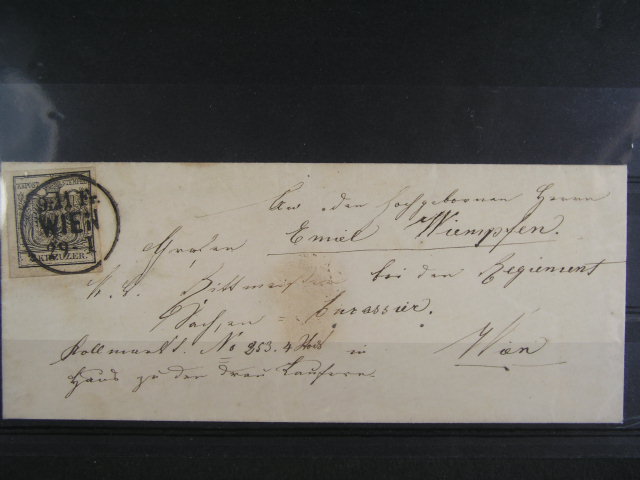 WIEN
29 1
KREUZER.
An den Hochgebornen Herrn
Grafen Emiel Wiempfen.
K. K. Rittmeister bei den Regiement
Sachsen = Curassier.
Kollmarkt. No 253. 4
in Wien
Haus zu den drau Laufern.